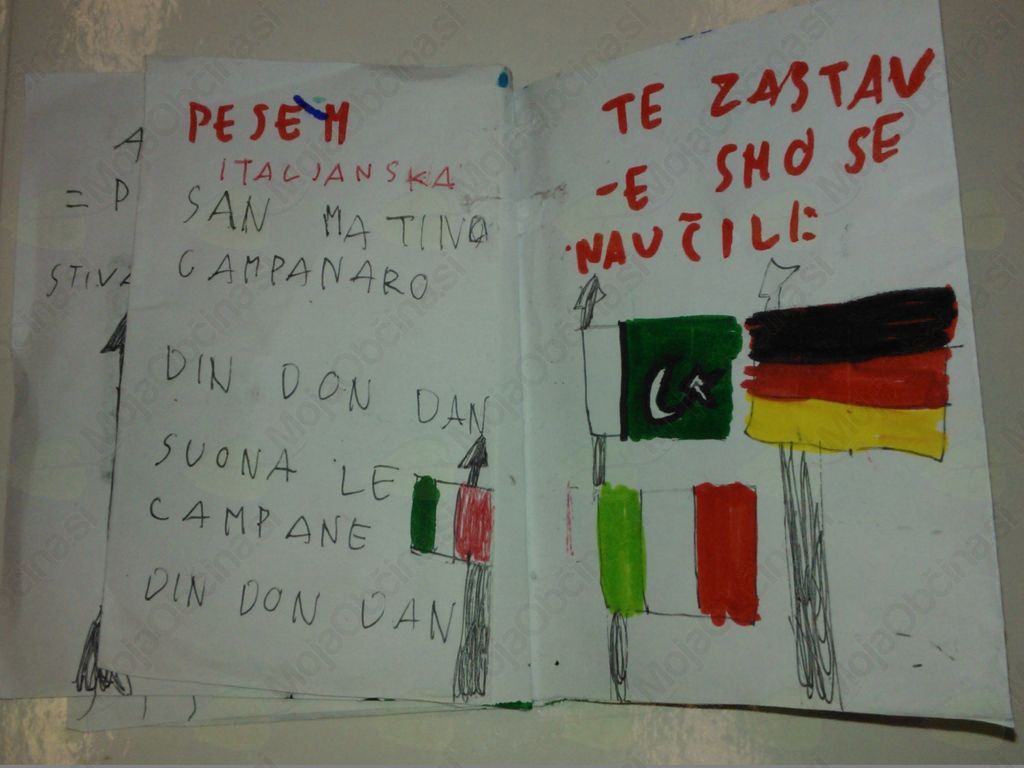 A
= P
STIVA
PESEM
ITALJANSKA
SAN MATINO
CAMPANARO
DIN DON DAN
SUONA LE
CAMPANE
DIN DON DAN
TE ZASTAV
-E SMO SE
NAUČILE
MojaObčina.si